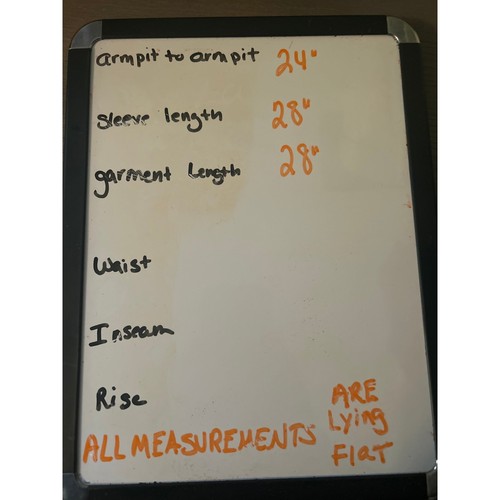 armpit to armpit 24"
sleeve length 28"
garment Length 28"
Waist
Inseam
Rise
ALL MEASUREMENTS ARE
Lying
Flat